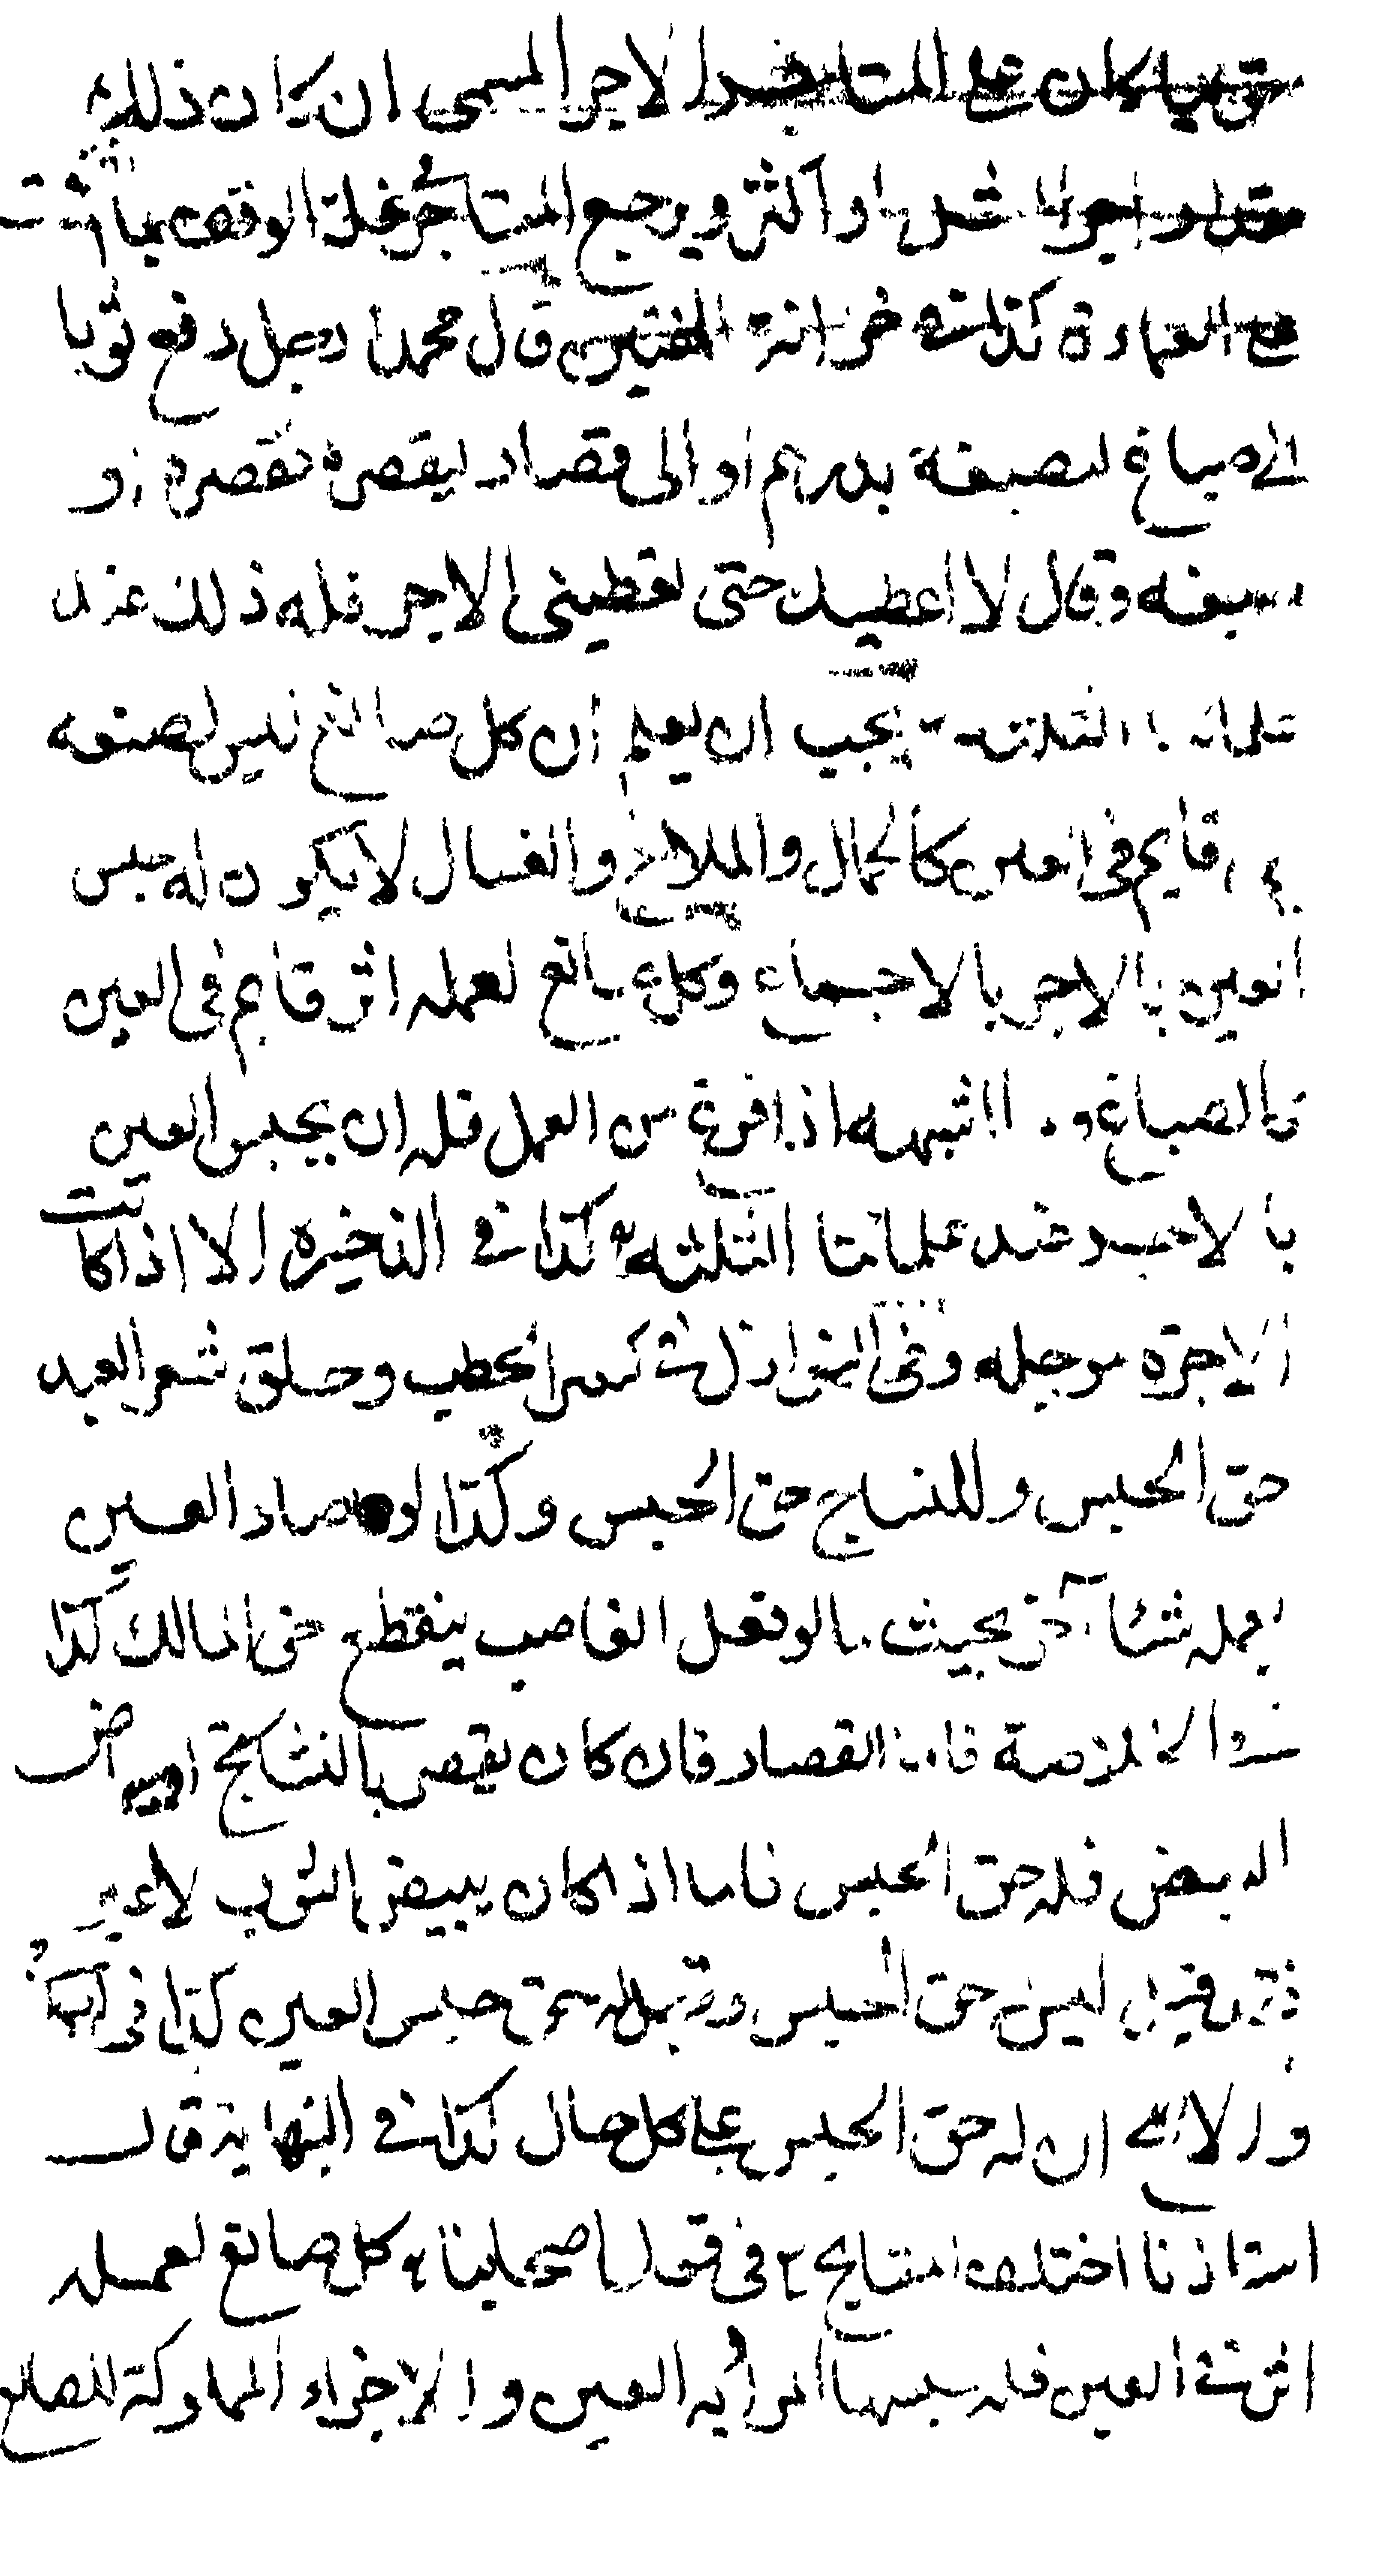 حتى ما كان على المستاجر الاجر المسمى ان كان ذلك
قدر اجر المثل او اكثر ويرجع المستاجر في غلة الوقف بما انفق
في العمارة كذا في خزانة المفتين قال محمد رجل دفع ثوبا
الى صباغ ليصبغه بدرهم او الى قصار ليقصره فقصره او
صبغه وقال لا اعطيك حتى تعطيني الاجر فله ذلك عند
علمائنا الثلثة يجب ان يعلم ان كل صانع ليس لصنعه
اثر قايم في العين كالحمال والملاح والغسال لا يكون له حبس
العين بالاجر بالاجماع وكل صانع لعمله اثر قايم في العين
كالصباغ و اشبهه اذا فرغ من العمل فله ان يحبس العين
بالاجر عند علمائنا الثلثة كذا في الذخيره الا اذا كانت
الاجرة موجله وفي النوازل في كسر الحطب وحلق شعر العبد
حق الحبس وللنساج حق الحبس وكذا لو صار العين
بعمله شيئا آخر بحيث لو فعل الغاصب ينقطع حق المالك كذا
في الخلاصة فاما القصار فان كان يقصر بالنشاستج او
البيض فله حق الحبس فاما اذا كان يبيض الثوب لا غير
فقد قيل ليس حق الحبس وقيل له حق حبس العين كذا في
والاصح ان له حق الحبس على كل حال كذا في النهاية قال
استاذنا اختلف المشايخ في قول اصحابنا كل صانع لعمله
اثر في العين فله حبسها اراد به العين والاجزاء المملوكة للصانع